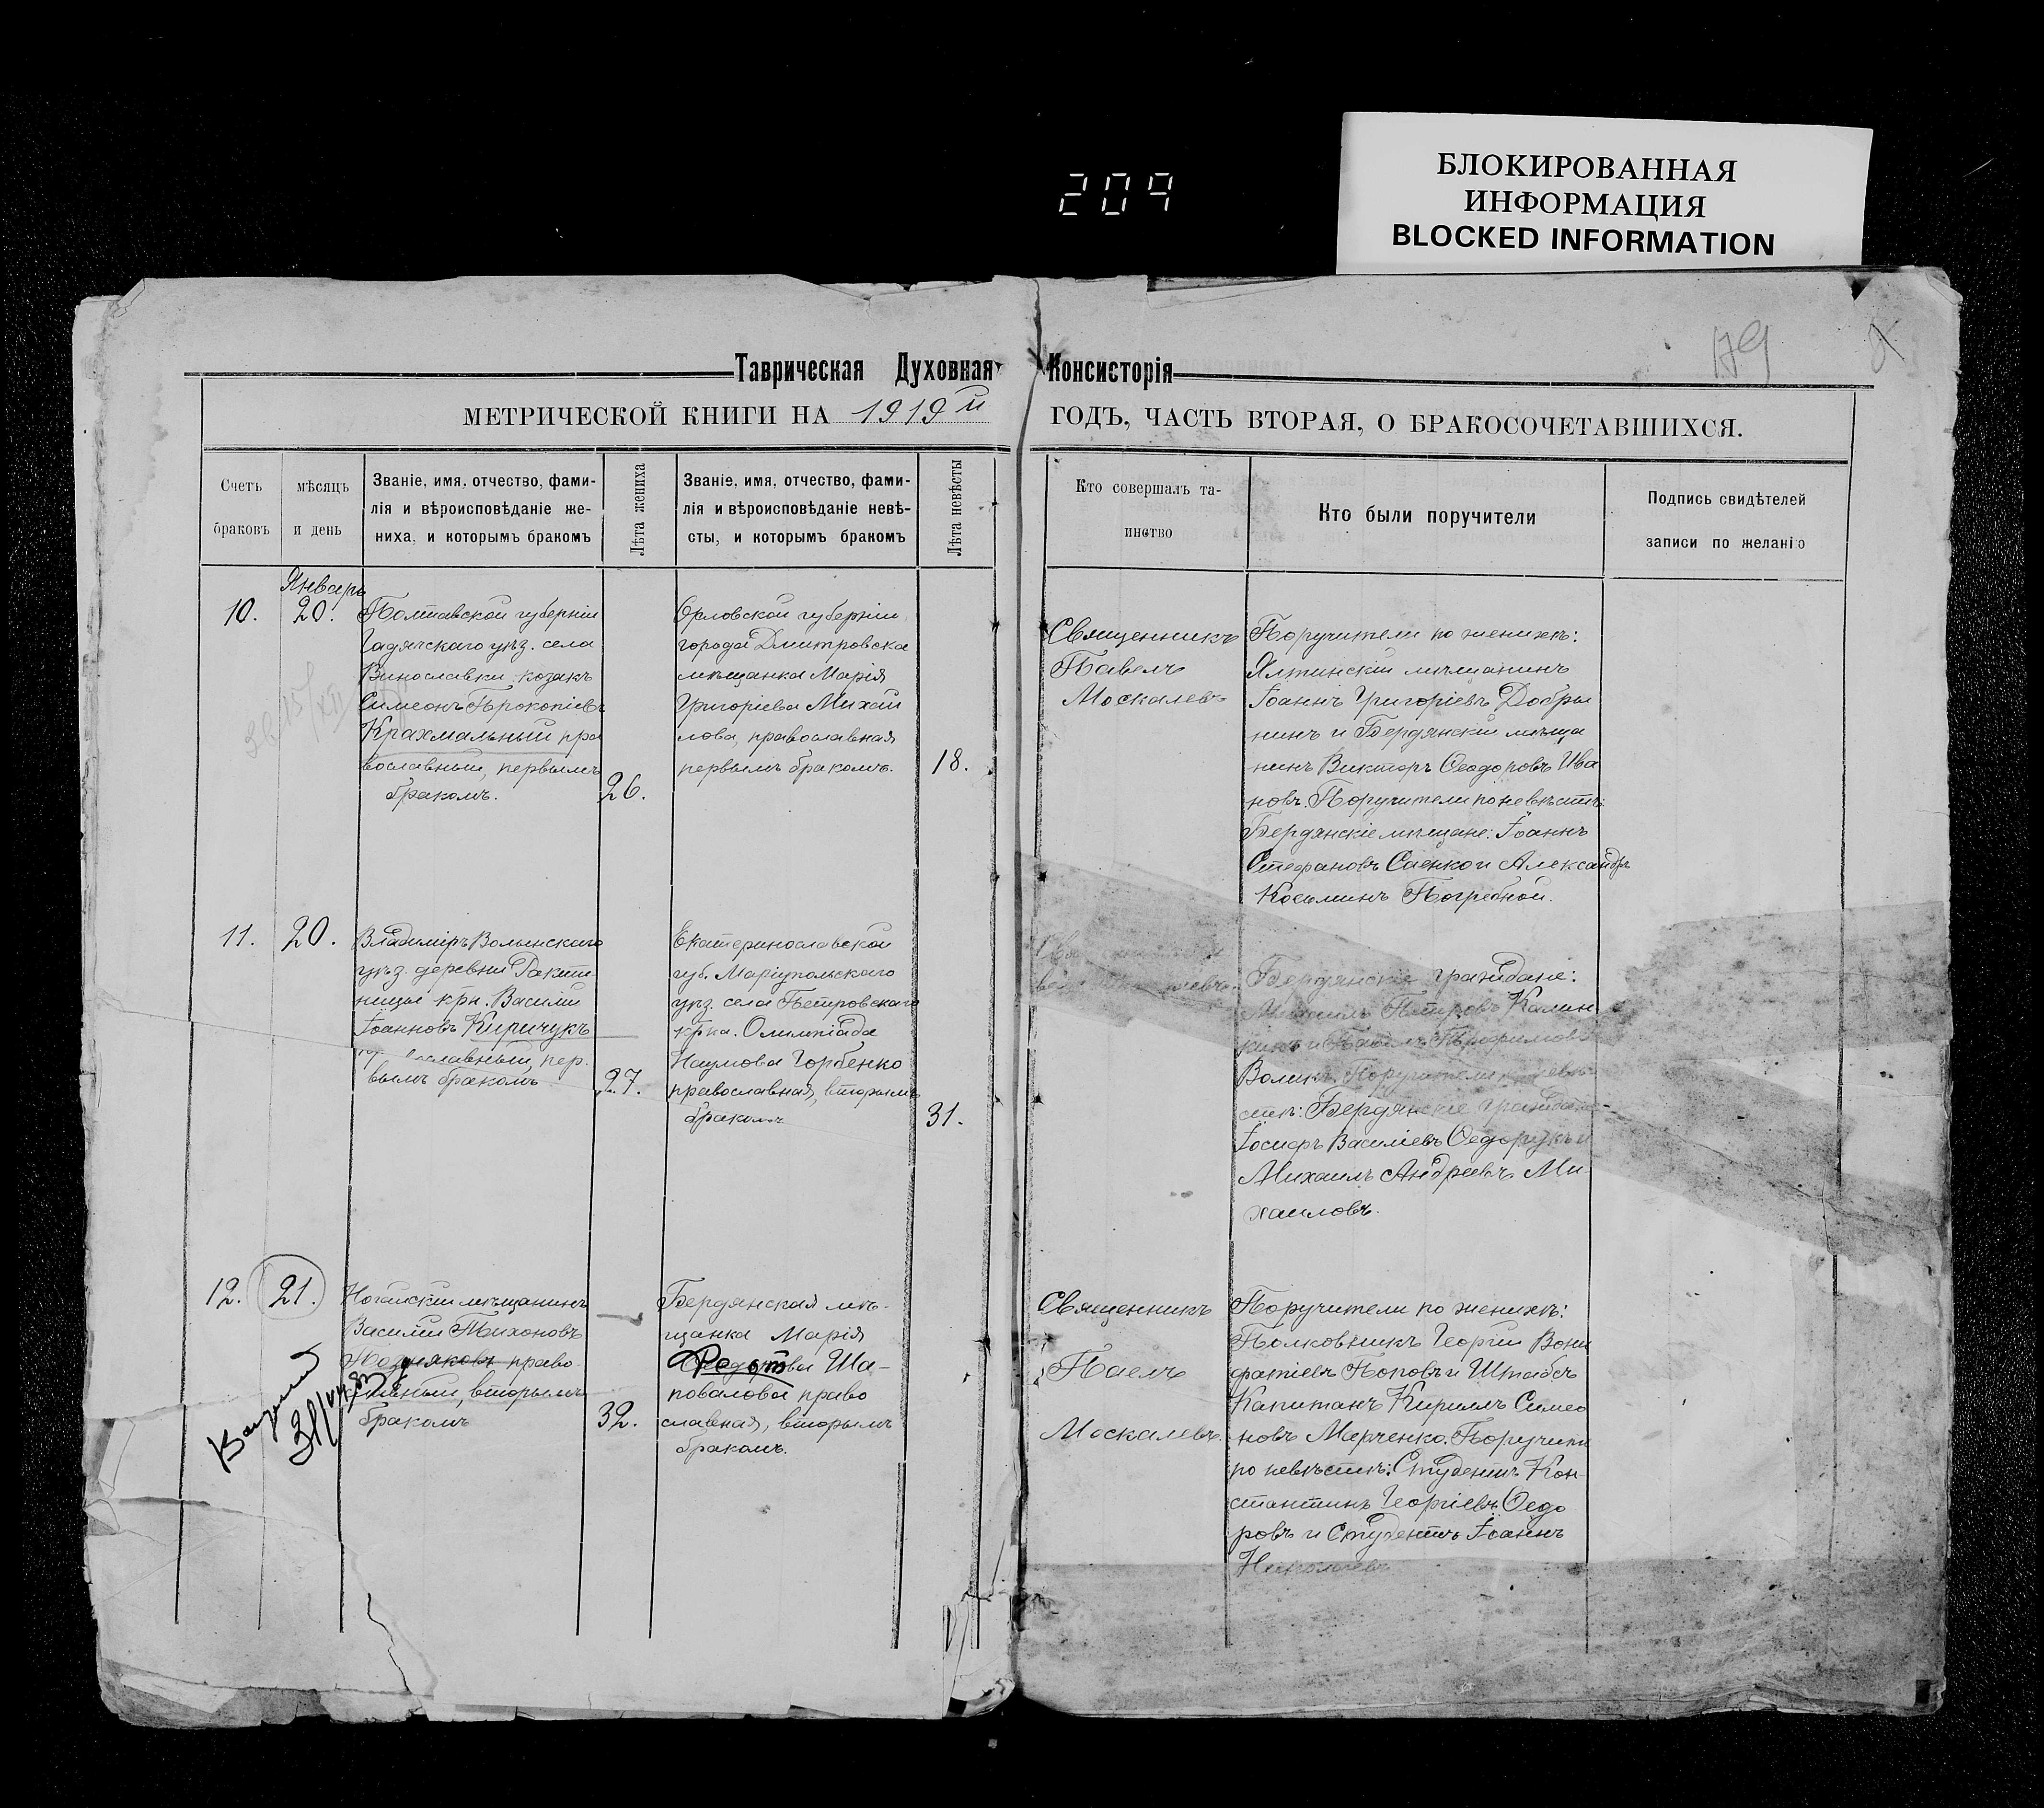 БЛОКИРОВАННАЯ
ИНФОРМАЦИЯ
BLOCKED INFORMATION
209
179
Таврическая Духовная Консисторія
МЕТРИЧЕСКОЙ КНИГИ НА 1919й ГОДЪ, ЧАСТЬ ВТОРАЯ, О БРАКОСОЧЕТАВШИХСЯ.
Счетъ
браковъ
мѣсяцъ
и день
Званіе, имя, отчество, фами-
лія и вѣроисповѣданіе же-
ниха, и которымъ бракомъ
Лѣта жениха
Званіе, имя, отчество, фами-
лія и вѣроисповѣданіе невѣ-
сты, и которымъ бракомъ
Лѣта невѣсты
Кто совершалъ та-
инство
Кто были поручители
Подпись свидѣтелей
записи по желанію
10.
Январь
20.
Полтавской губерніи
Гадячскаго уѣз. села
Винославки козакъ
Симеонъ Прокопіевъ
Крахмальный пра
вославный, первымъ
бракомъ.
26.
Орловской губерніи
города Дмитровска
мѣщанка Марія
Григоріева Михаи
лова, православная
первымъ бракомъ.
18.
Священникъ
Павелъ
Москалевъ
Поручители по женихѣ:
Ялтинскій мѣщанинъ
Іоаннъ Григоріевъ Добры
нинъ и Бердянскій мѣща
нинъ Викторъ Ѳеодоровъ Ива
новъ. Поручители по невѣстѣ:
Бердянскіе мѣщане: Іоаннъ
Стефановъ Саенко и Александръ
Косьминъ Погребной.
11.
20.
Владиміръ Волынскаго
уѣз. деревни Ракит
ницы крн. Василій
Іоанновъ Киричукъ
православный, пер.
вымъ бракомъ
27.
Екатеринославской
губ. Маріупольскаго
уѣз. села Петровскаго
крка. Олимпіада
Наумова Горбенко
православная, вторымъ
бракомъ
31.
Бердянскіе граждане:
Михаилъ Петровъ Калин
кинъ и Павелъ Трофимовъ
Воликъ. Поручители по невѣ
стѣ: Бердянскіе граждане
Іосифъ Василіевъ Ѳедорукъ и
Михаилъ Андреевъ Ми
хаиловъ.
12.
21.
Ногайскій мѣщанинъ
Василій Тихоновъ
Поздняковъ право
славный, вторымъ
бракомъ
32.
Бердянская мѣ-
щанка Марія
Федотова Ша-
повалова право
славная, вторымъ
бракомъ.
Священникъ
Паелъ
Москалевъ.
Поручители по женихѣ:
Полковникъ Георгій Вони
фатіевъ Поповъ и Штабсъ
Капитанъ Кириллъ Симео
новъ Марченко. Поручители
по невѣстѣ: Студентъ Кон-
стантинъ Георгіевъ Ѳедо
ровъ и Студентъ Іоаннъ
Николаевъ